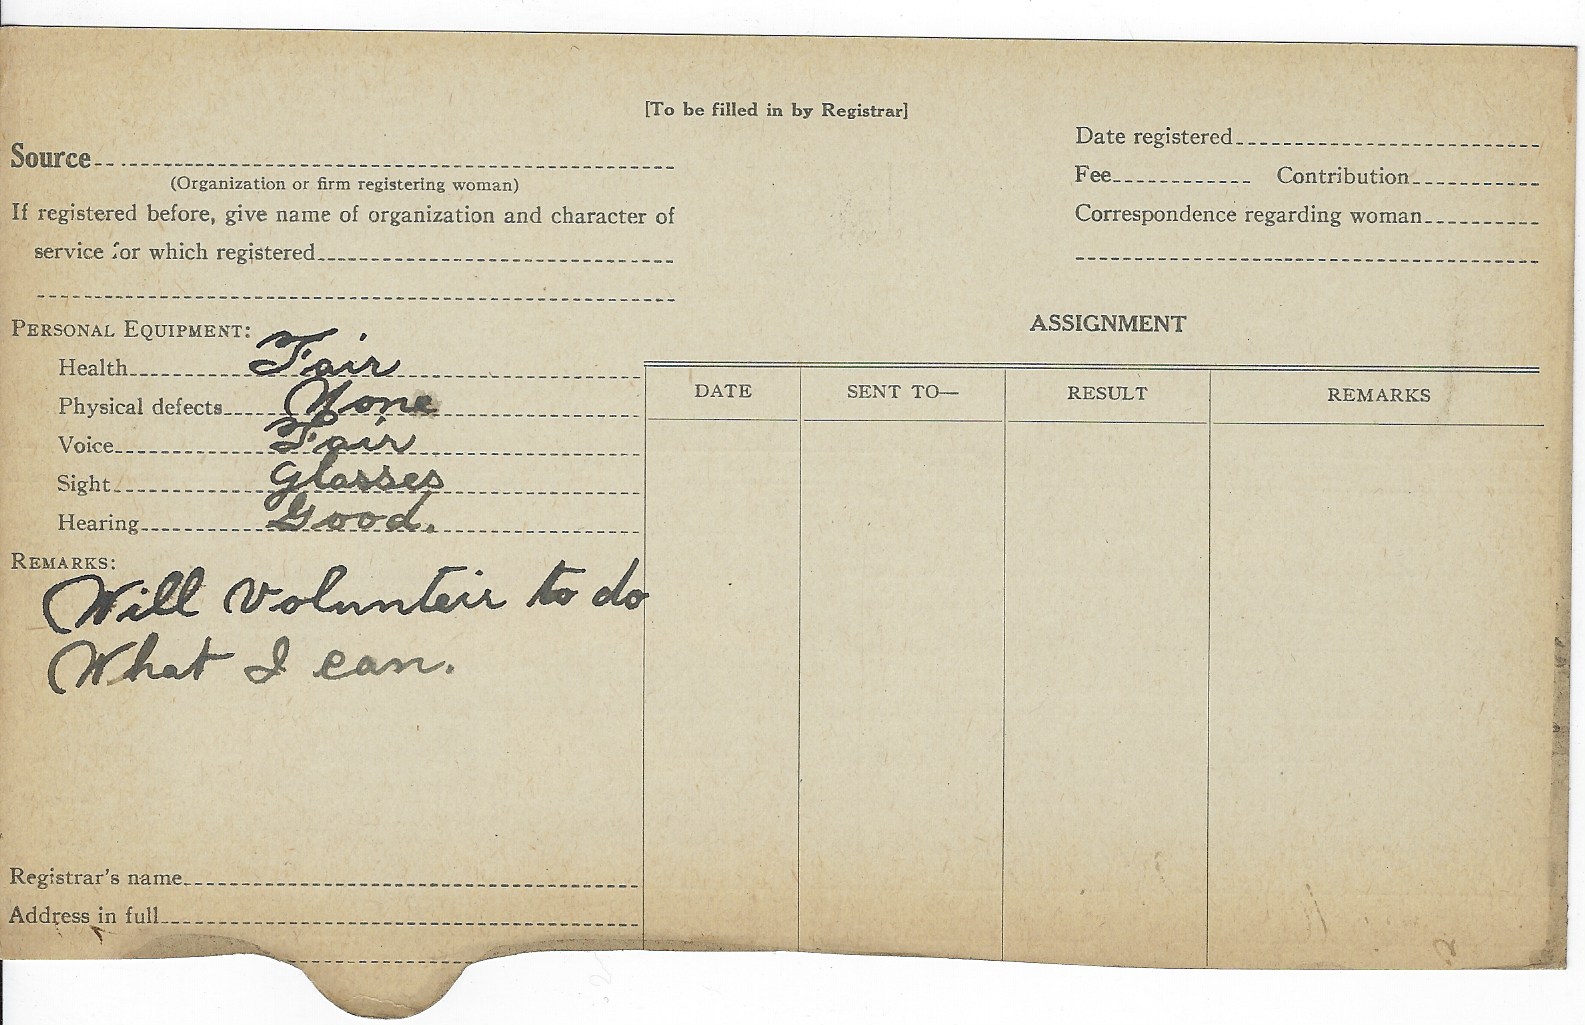 [To be filled in by Registrar]
Source
(Organization or firm registering woman)
If registered before, give name of organization and character of
service for which registered
Date registered
Fee Contribution
Correspondence regarding woman
PERSONAL EQUIPMENT:
Health Fair
Physical defects None
Voice Fair
Sight Glasses
Hearing Good.
REMARKS:
Will Volunteir to do
What I can.
Registrar's name
Address in full
ASSIGNMENT
DATE SENT TO— RESULT REMARKS